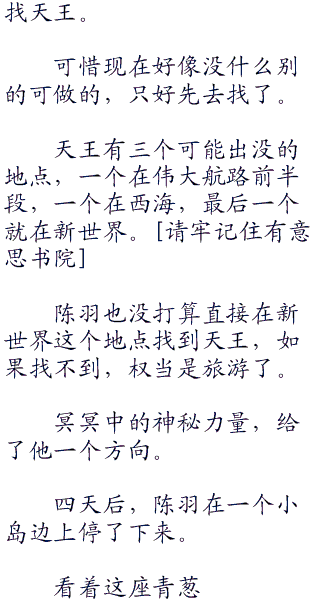 找天王。
可惜现在好像没什么别
的可做的，只好先去找了。
天王有三个可能出没的
地点，一个在伟大航路前半
段，一个在西海，最后一个
就在新世界。[请牢记住有意
思书院]
陈羽也没打算直接在新
世界这个地点找到天王，如
果找不到，权当是旅游了。
冥冥中的神秘力量，给
了他一个方向。
四天后，陈羽在一个小
岛边上停了下来。
看着这座青葱